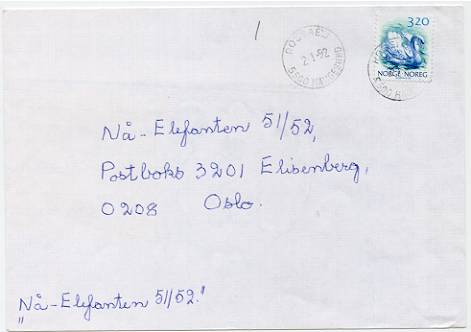 2.1.92
3.20
NORGE NOREG
Nå-Elefanten 51/52,
Postboks 3201 Elisenberg,
0208 Oslo.
"Nå-Elefanten 51/52."